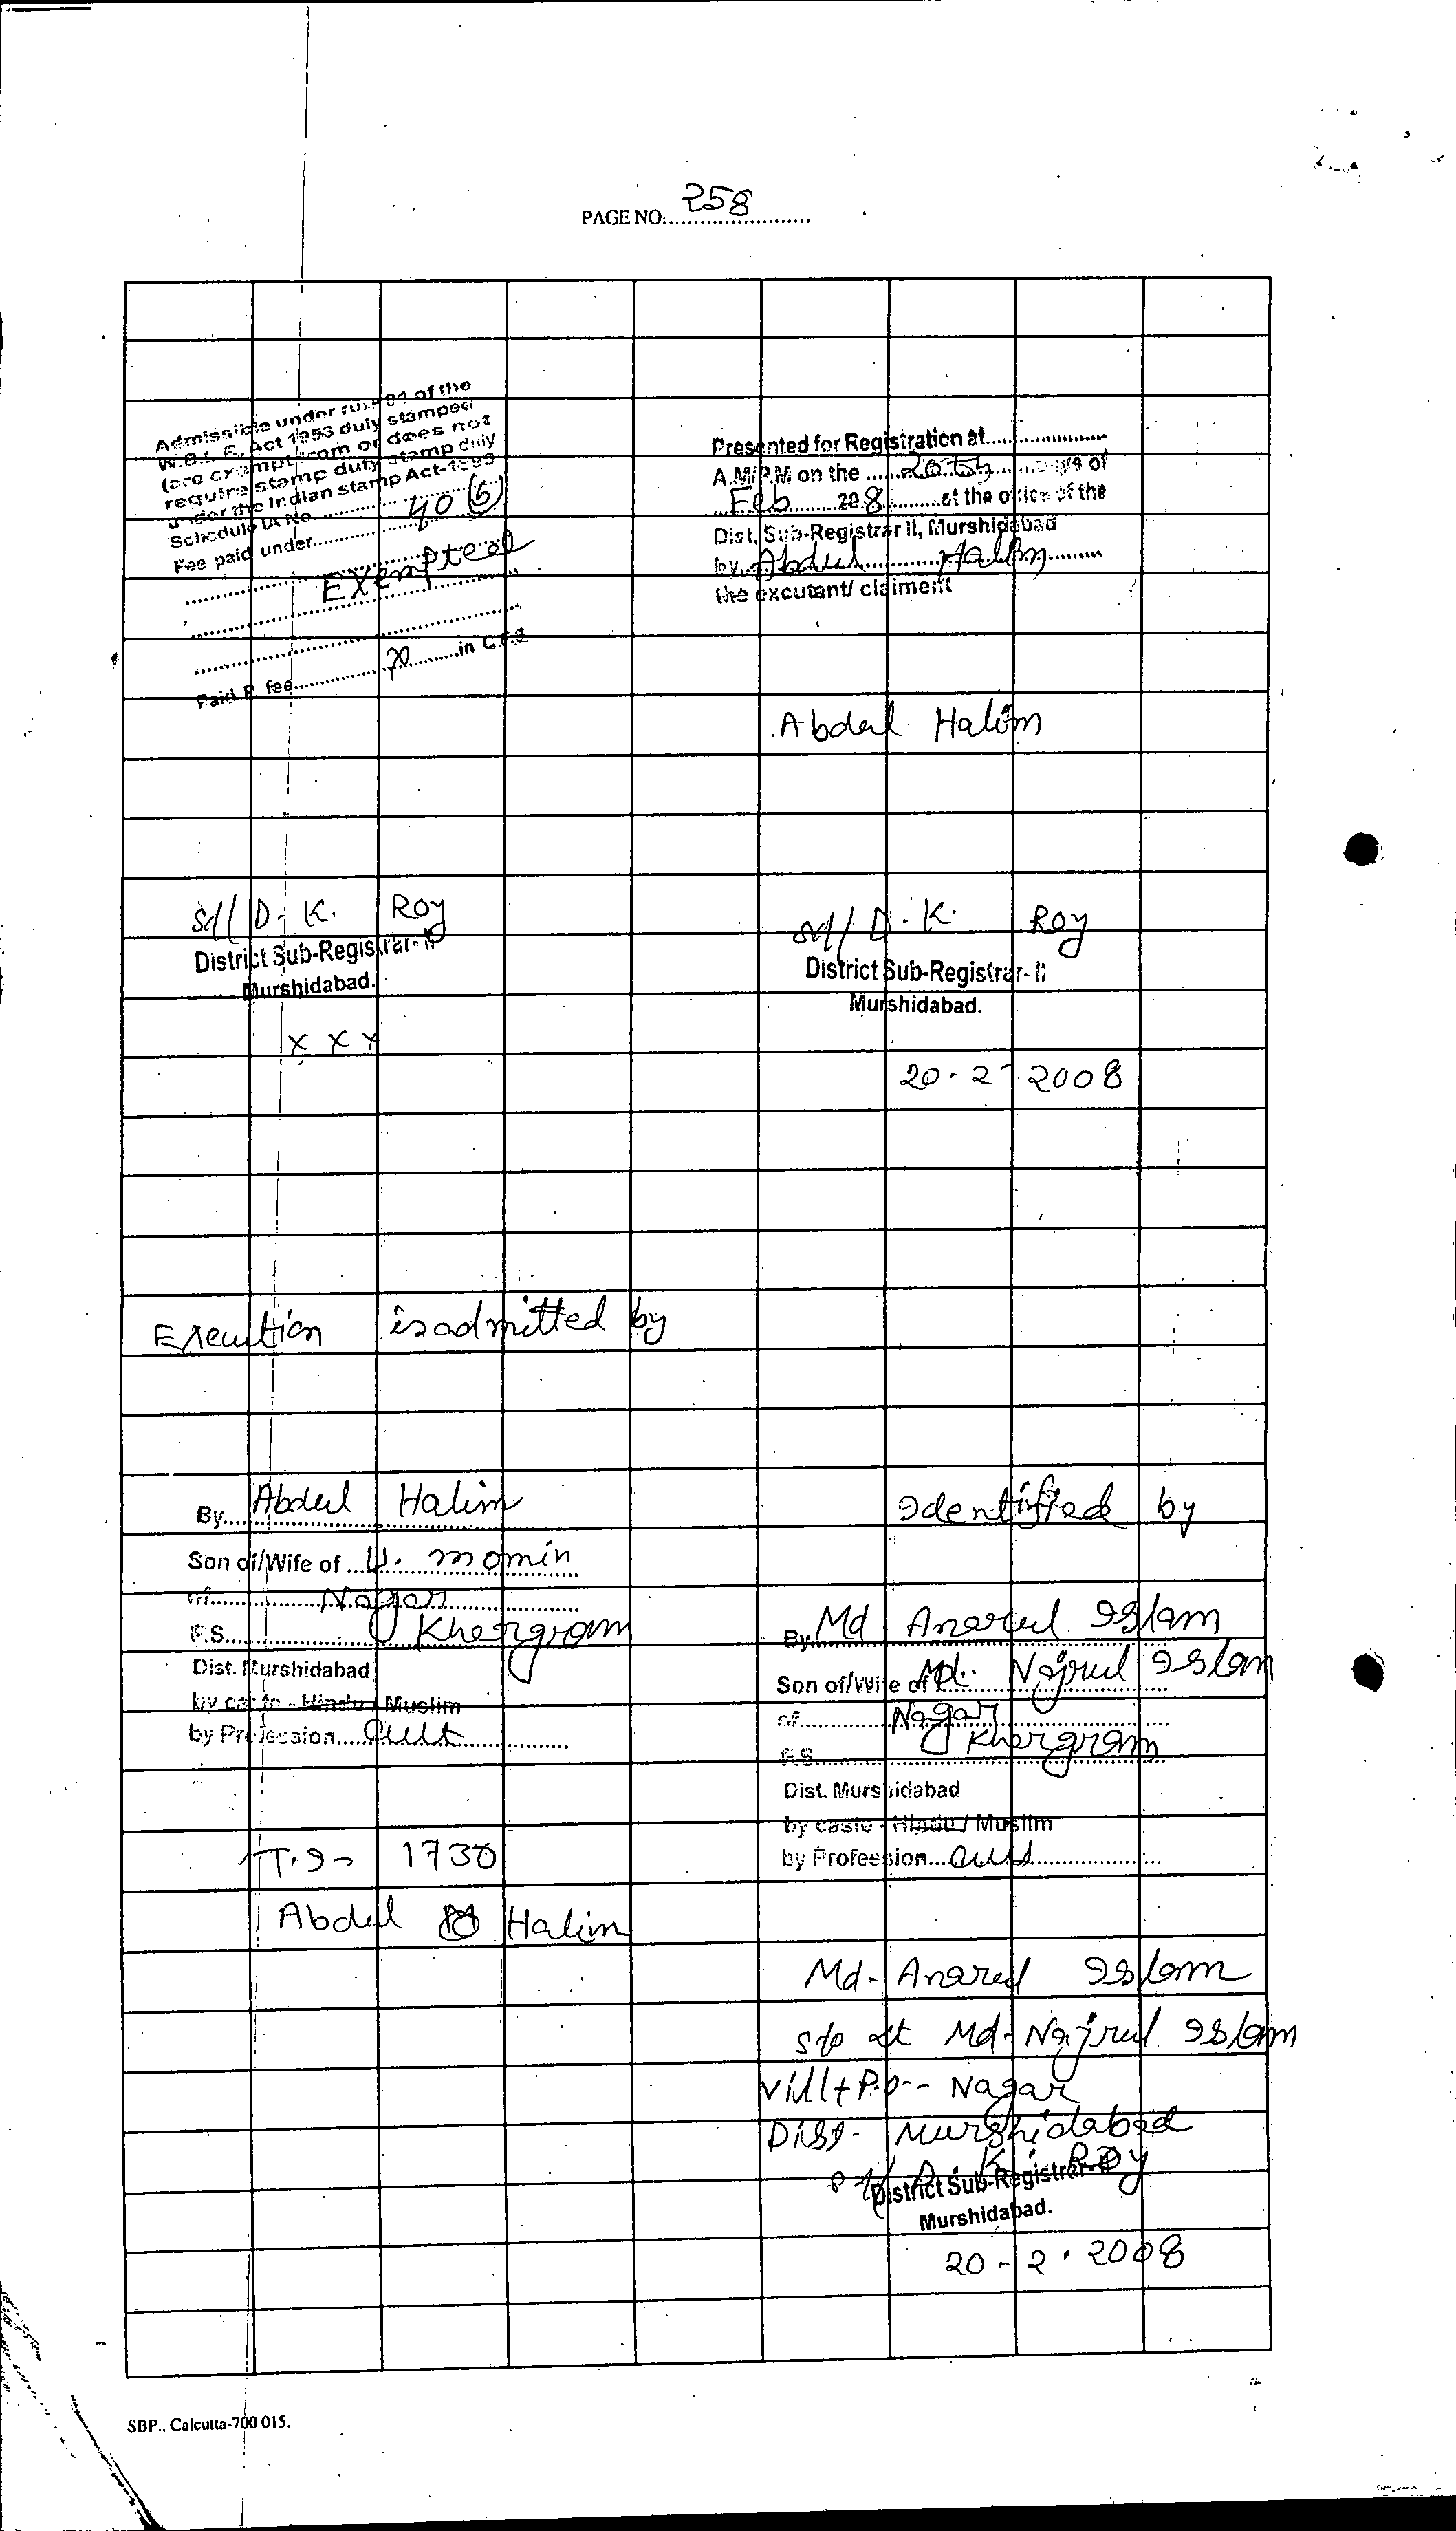 PAGE NO. 258
Admissible under rule 21 of the
W.B.L.R. Act 1956 duly stamped
(are exempt from or does not
require stamp duty stamp duly
under the Indian stamp Act-1899
Schedule IA No. 40 (b)
Fee paid under
Exempted
Paid P. fee in C.F.S.
Presented for Registration at
A.M/P.M on the 20th days of
Feb 2008 at the office of the
Dist. Sub-Registrar II, Murshidabad
by Abdul Halim
the excutant/ claiment
Abdul Halim
Sd/ D. K. Roy
District Sub-Registrar-II
Murshidabad.
x x x
Sd/ D. K. Roy
District Sub-Registrar-II
Murshidabad.
20.2.2008
Execution is admitted by
By Abdul Halim
Son of/Wife of momin
of Nagar
P.S. Khargram
Dist. Murshidabad
by caste - Hindu / Muslim
by Profession cult
T.I- 1730
Abdul Halim
Identified by
By Md Anarul Islam
Son of/Wife of Md. Najrul Islam
of Nagar
P.S. Khargram
Dist. Murshidabad
by caste - Hindu / Muslim
by Profession cult
Md. Anarul Islam
s/o Lt Md. Najrul Islam
Vill + P.O- Nagar
Dist- Murshidabad
Sd/ D. K. Roy
District Sub-Registrar-II
Murshidabad.
20-2.2008
SBP., Calcutta-700 015.